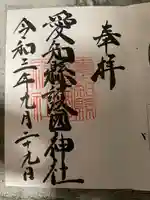 奉拝
愛知縣護國神社
令和三年九月二十九日